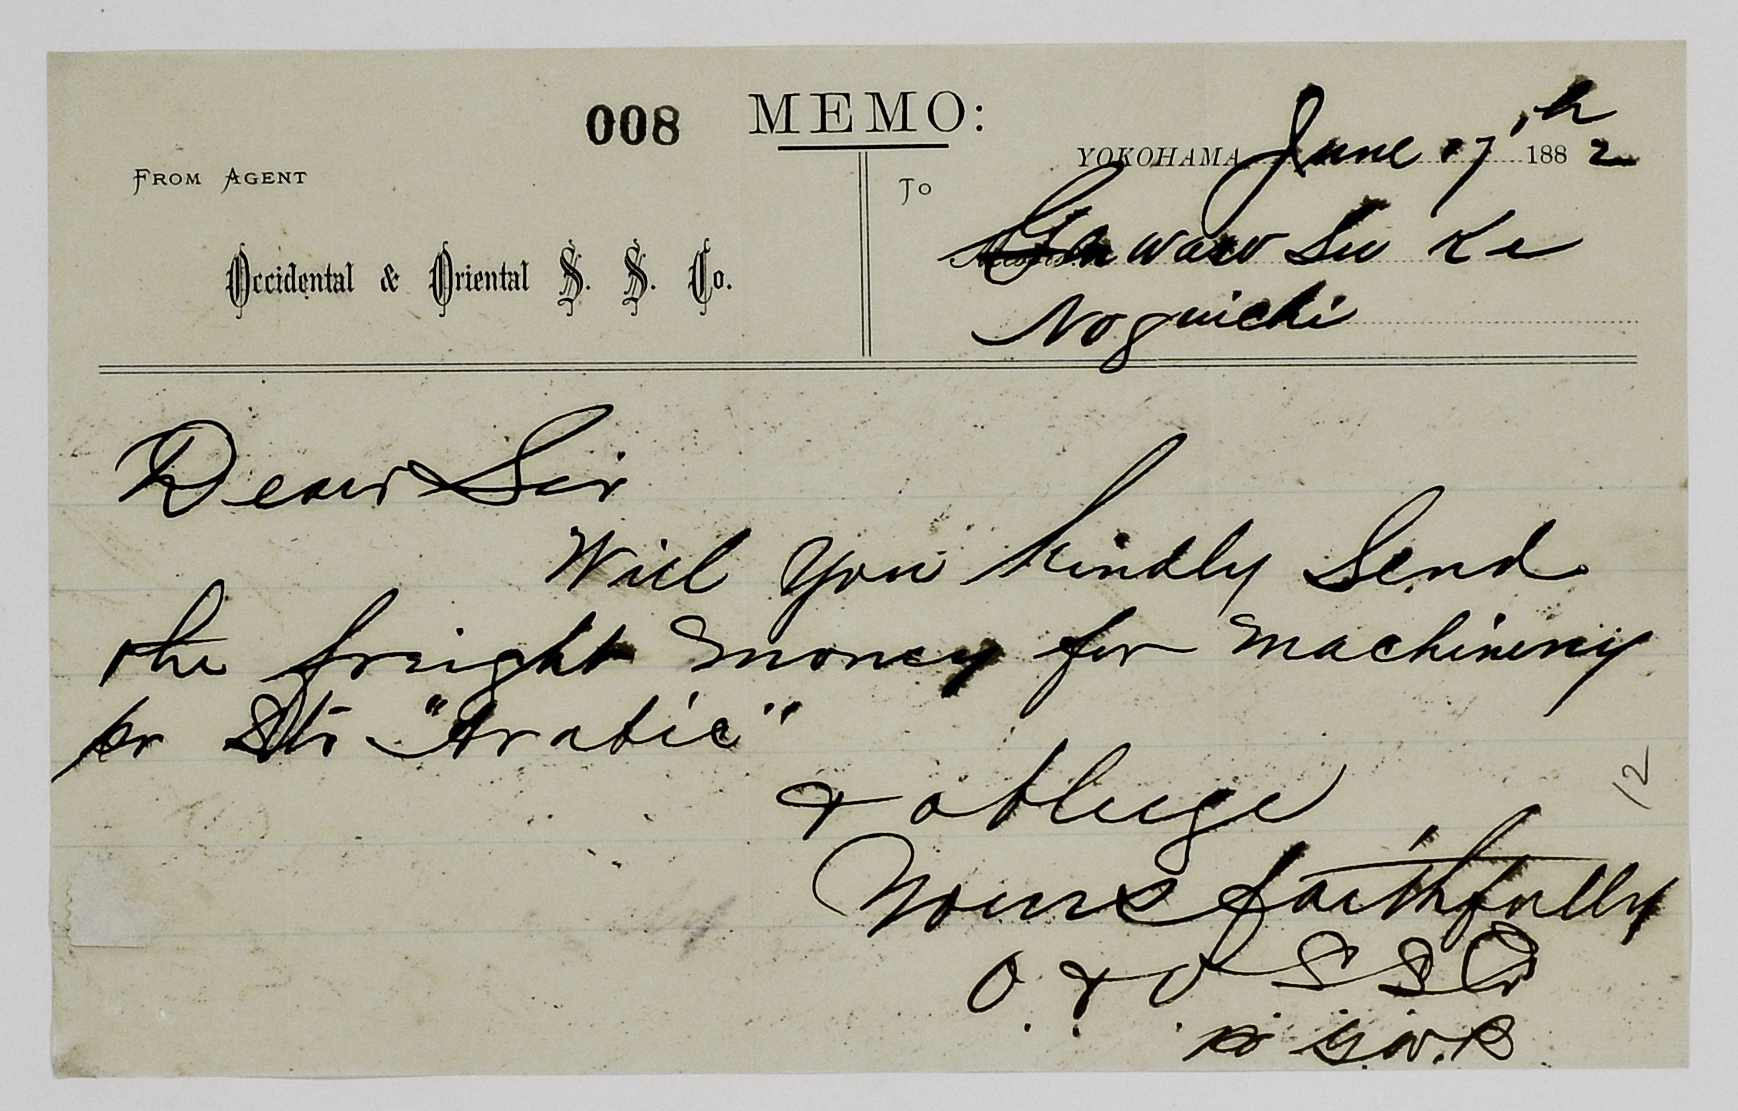 008 MEMO:
YOKOHAMA June 17th 1882
FROM AGENT
TO
Occidental & Oriental S. S. Co.
Su Ke
Noguichi
Dear Sir
Will you kindly Send
the freight money for machinery
pr Str "Arabic"
& obleige
Yours faithfully
O & O S S Co
pr
12